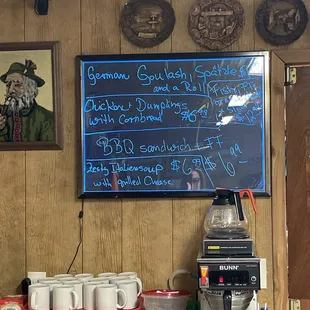 German Goulash, Spätzle
and a Roll
Chicken & Dumplings
with Cornbread $6.99
BBQ sandwich + FF
Zesty Italian soup $6.99
with grilled Cheese
BUNN